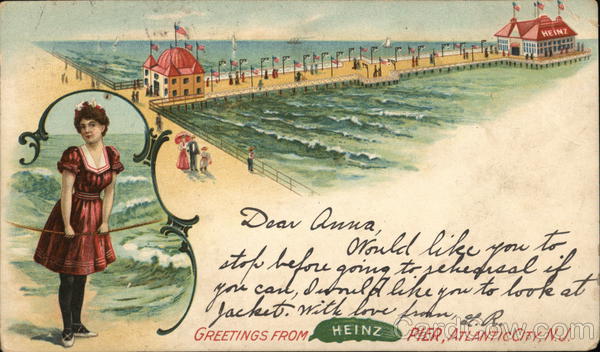 HEINZ
Dear Anna,
Would like you to
stop before going to rehersal if
you can, I would like you to look at
Jacket. With love from
GREETINGS FROM HEINZ PIER, ATLANTIC CITY, N.J.
CardCow.com